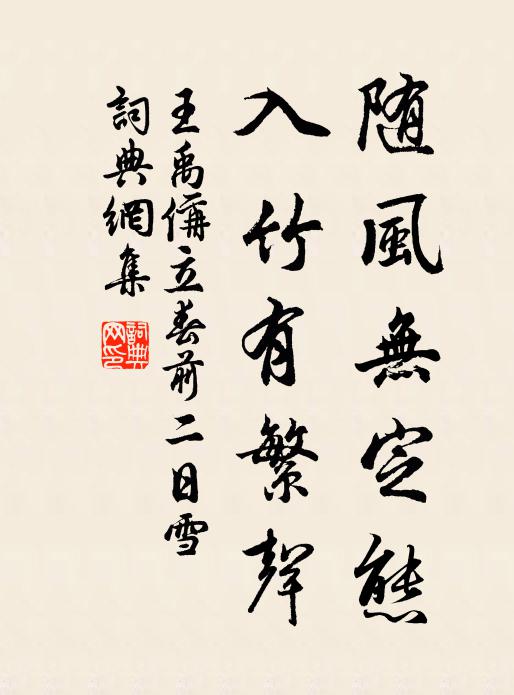 随風無定態
入竹有繁聲
王禹偁立春前二日雪
詞典網集
詞典網印